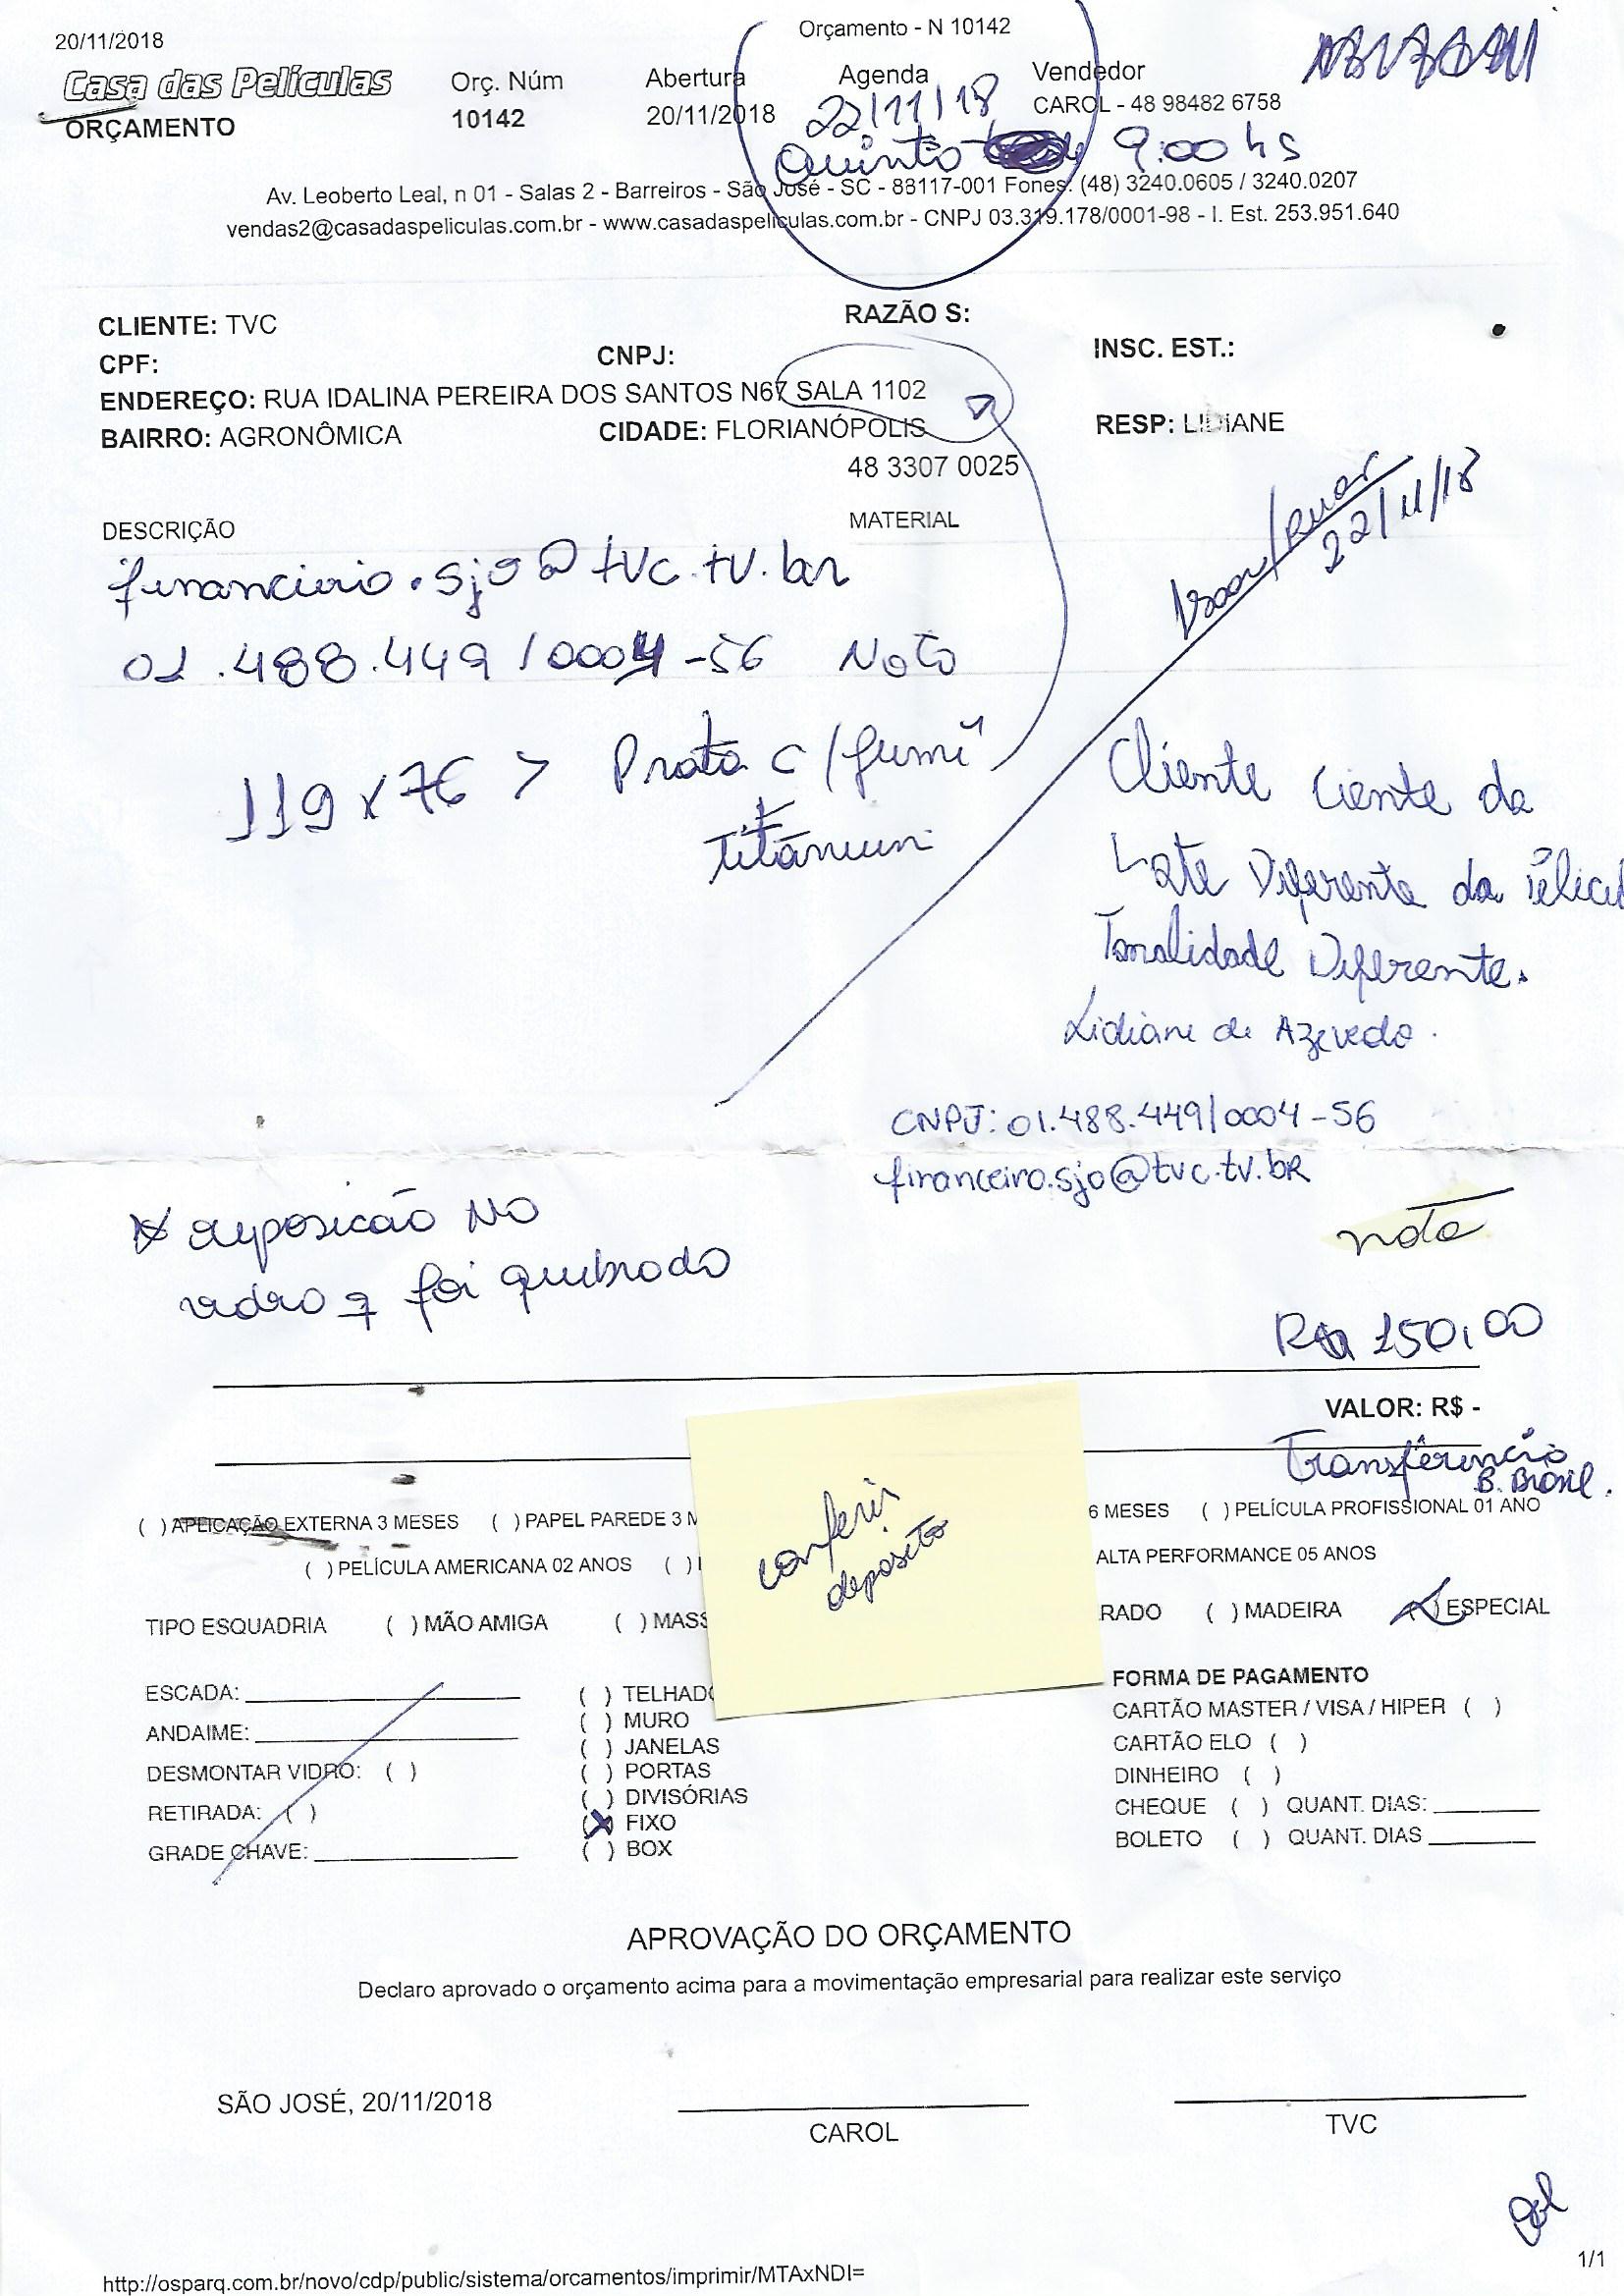 Orçamento - N 10142
20/11/2018
Casa das Películas
ORÇAMENTO
Orç. Núm
10142
Abertura
20/11/2018
Agenda
22/11/18
Quinto 9:00 hs
Vendedor
CAROL - 48 98482 6758
Av. Leoberto Leal, n 01 - Salas 2 - Barreiros - São José - SC - 88117-001 Fones: (48) 3240.0605 / 3240.0207
vendas2@casadaspeliculas.com.br - www.casadaspeliculas.com.br - CNPJ 03.319.178/0001-98 - I. Est. 253.951.640
CLIENTE: TVC
RAZÃO S:
CPF:
CNPJ:
INSC. EST.:
ENDEREÇO: RUA IDALINA PEREIRA DOS SANTOS N67 SALA 1102
BAIRRO: AGRONÔMICA
CIDADE: FLORIANÓPOLIS
RESP: LIDIANE
48 3307 0025
DESCRIÇÃO
MATERIAL
22/11/18
financiario.sjo@tvc.tv.br
01.488.449/0004-56 Noto
119 x 76 > Prata c/fumê
Titânium
Cliente Ciente da
Late Diferente da
Tonalidade Diferente.
Lidiane de Azevedo.
CNPJ: 01.488.449/0004-56
financeiro.sjo@tvc.tv.bR
nota
reposicão No
vidro q foi quebrado
R$ 150,00
VALOR: R$ -
Transferência
B. Brasil.
( ) APLICAÇÃO EXTERNA 3 MESES ( ) PAPEL PAREDE 3 M
6 MESES ( ) PELÍCULA PROFISSIONAL 01 ANO
( ) PELÍCULA AMERICANA 02 ANOS ( )
ALTA PERFORMANCE 05 ANOS
conferir
deposito
TIPO ESQUADRIA ( ) MÃO AMIGA ( ) MASS
RADO ( ) MADEIRA ( ) ESPECIAL
ESCADA:
ANDAIME:
DESMONTAR VIDRO: ( )
RETIRADA: ( )
GRADE CHAVE:
( ) TELHADO
( ) MURO
( ) JANELAS
( ) PORTAS
( ) DIVISÓRIAS
(X) FIXO
( ) BOX
FORMA DE PAGAMENTO
CARTÃO MASTER / VISA / HIPER ( )
CARTÃO ELO ( )
DINHEIRO ( )
CHEQUE ( ) QUANT. DIAS:
BOLETO ( ) QUANT. DIAS
APROVAÇÃO DO ORÇAMENTO
Declaro aprovado o orçamento acima para a movimentação empresarial para realizar este serviço
SÃO JOSÉ, 20/11/2018
CAROL
TVC
1/1
http://osparq.com.br/novo/cdp/public/sistema/orcamentos/imprimir/MTAxNDI=